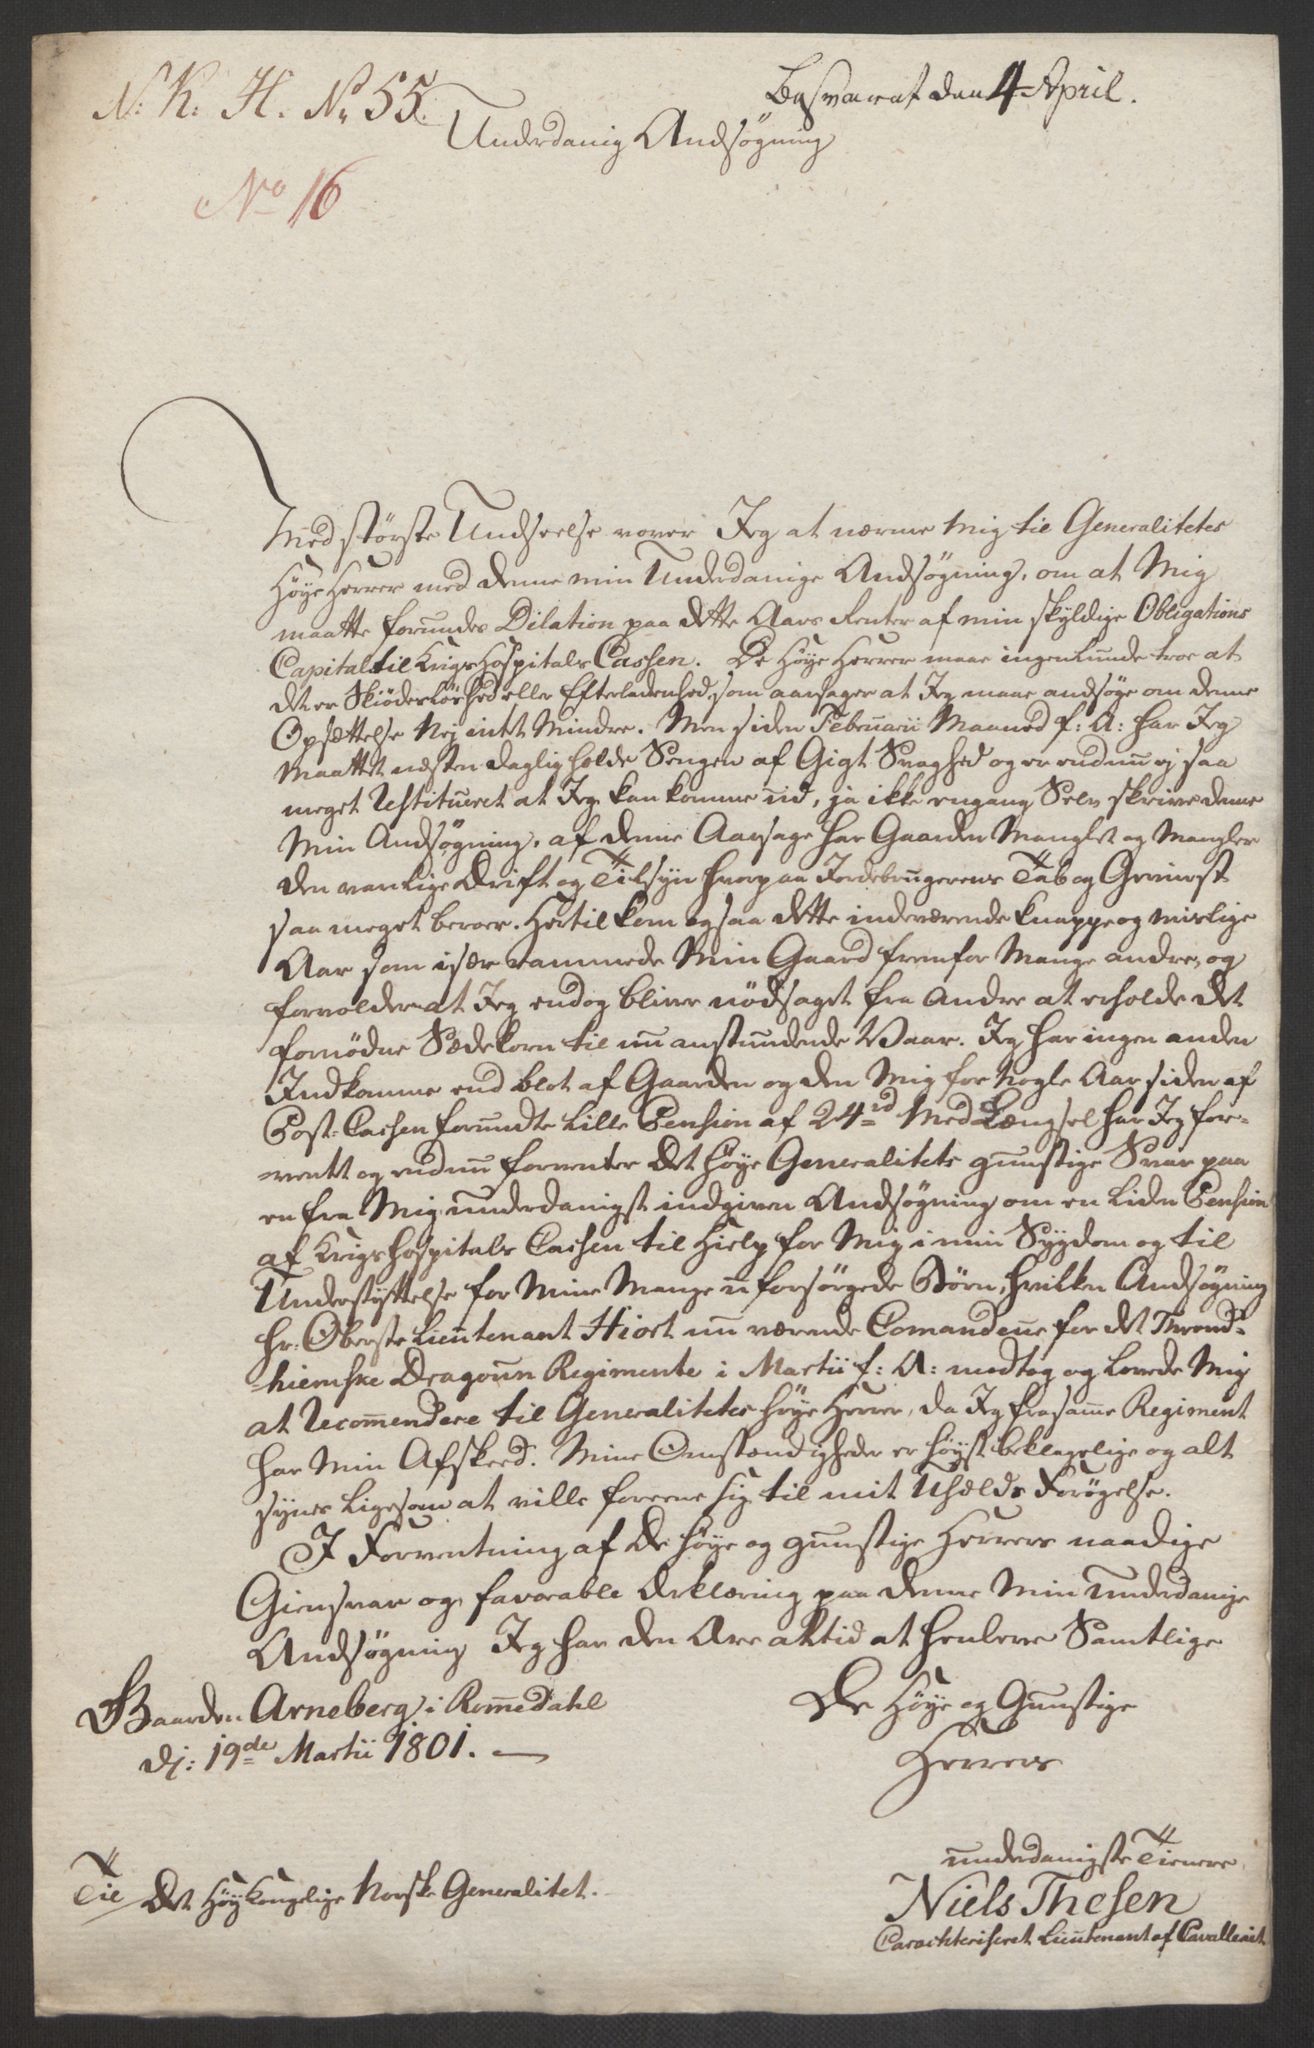 N: K: H. No 55.
Besvaret den 4 April.
Underdanig Andsøgning
No 16
Med største Undseelse vover Jeg at nærme Mig til Generalitetes
Høye Herrer med denne min Underdanige Andsøgning, om at Mig
maatte forundes Dilation paa dette Aars Renter af min skyldige Obligations
Capital til Krigs Hospitals Cassen. De Høye Herrer maae ingenlunde troe at
det er Skiødesløshed eller Efterladenhed, som aarsager at Jeg maae andsøge om denne
Opsættelse Nej intet Mindre. Men siden Februarii Maaned f: A: har Jeg
Maattet næsten daglig holde Sengen af Gigt Svaghed og er endnu ej saa
meget Restitueret at Jeg kan komme ud, ja ikke engang Selv skrive denne
Min Andsøgning, af denne Aarsage har Gaarden Manglet og Mangler
den vanlige Drift og Tilsyn hvorpaa Jordebrugerens Tab og Gevinst
saa meget beroer. Hertil kom ogsaa dette indeværende knappe og mislige
Aar som især rammede Min Gaard fremfor Mange andre, og
forvolder at Jeg endog bliver nødsaget fra Andre at erholde det
fornødne Sædekorn til nu anstundende Vaar. Jeg har ingen anden
Indkomme end blot af Gaarden og den Mig for Nogle Aar siden af
Post-Cassen forundte lille Pension af 24 rd Med Længsel har Jeg for-
ventet og endnu forventer det høye Generalitets gunstige Svar paa
en fra Mig underdanigst indgiven Andsøgning om en liden Pension
af Krigshospitals Cassen til Hielp for Mig i min Sygdom og til
Understyttelse for Mine Mange uforsørgede Børn, hvilken Andsøgning
Hr: Oberste Lieutenant Hiort nu værende Comandeur for det Thrond-
hiemske Dragoun Regimente i Martii f: A: modtog og lovede Mig
at Recommendere til Generalitetes høye Herrer, da Jeg fra samme Regiment
har Min Afskeed. Mine Omstændigheder er høyst beklagelige og alt
synes ligesom at ville foreene sig til mit Uhælds Forøgelse.
I Forventning af De høye og gunstige Herrers naadige
Giensvar og favorable Erklæring paa denne Min underdanige
Andsøgning Jeg har den Ære altid at henleve Samtlige
Gaarden Arneberg i Romedahl
dj: 19de Martii 1801.
De Høye og Gunstige
Herrers
underdanigste Tienere
Niels Thesen
Carachteriseret Lieutenant af Cavalleriet
Til Det Høy Kongelige Norske Generalitet.